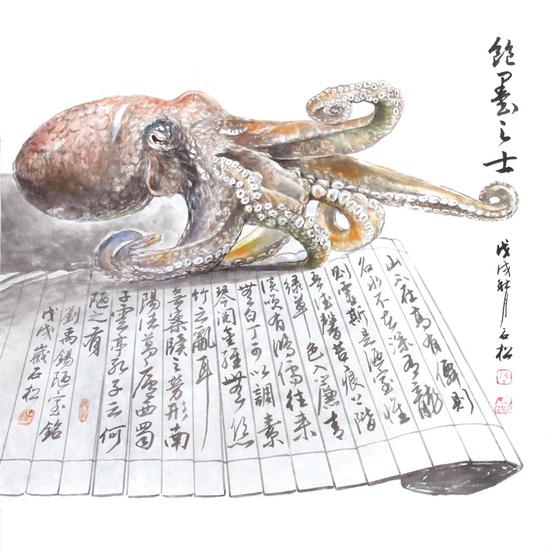 飽墨之士
戊戌秋月石松
山不在高有僊則
名水不在深有龍
則靈斯是陋室惟
吾德馨苔痕上階
綠草色入簾青
談笑有鴻儒往來
無白丁可以調素
琴閱金經無絲
竹之亂耳
無案牘之勞形南
陽諸葛廬西蜀
子雲亭孔子云何
陋之有
劉禹錫陋室銘
戊戌歲石松